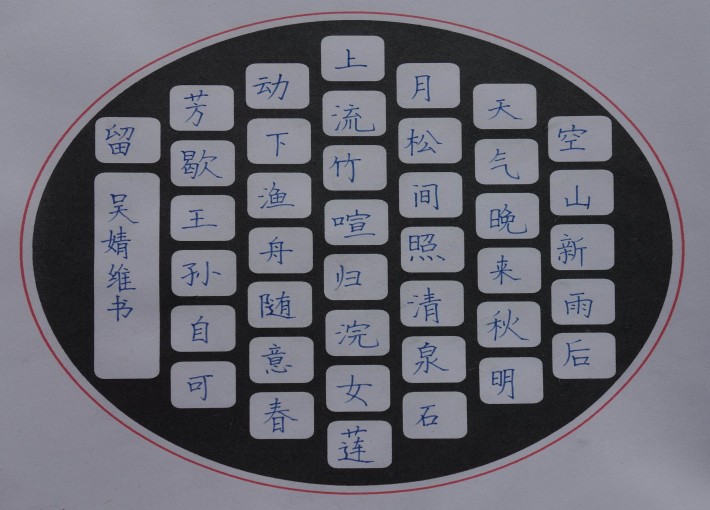 空山新雨后
天气晚来秋明
月松间照清泉石
上流竹喧归浣女莲
动下渔舟随意春
芳歇王孙自可
留
吴婧维书